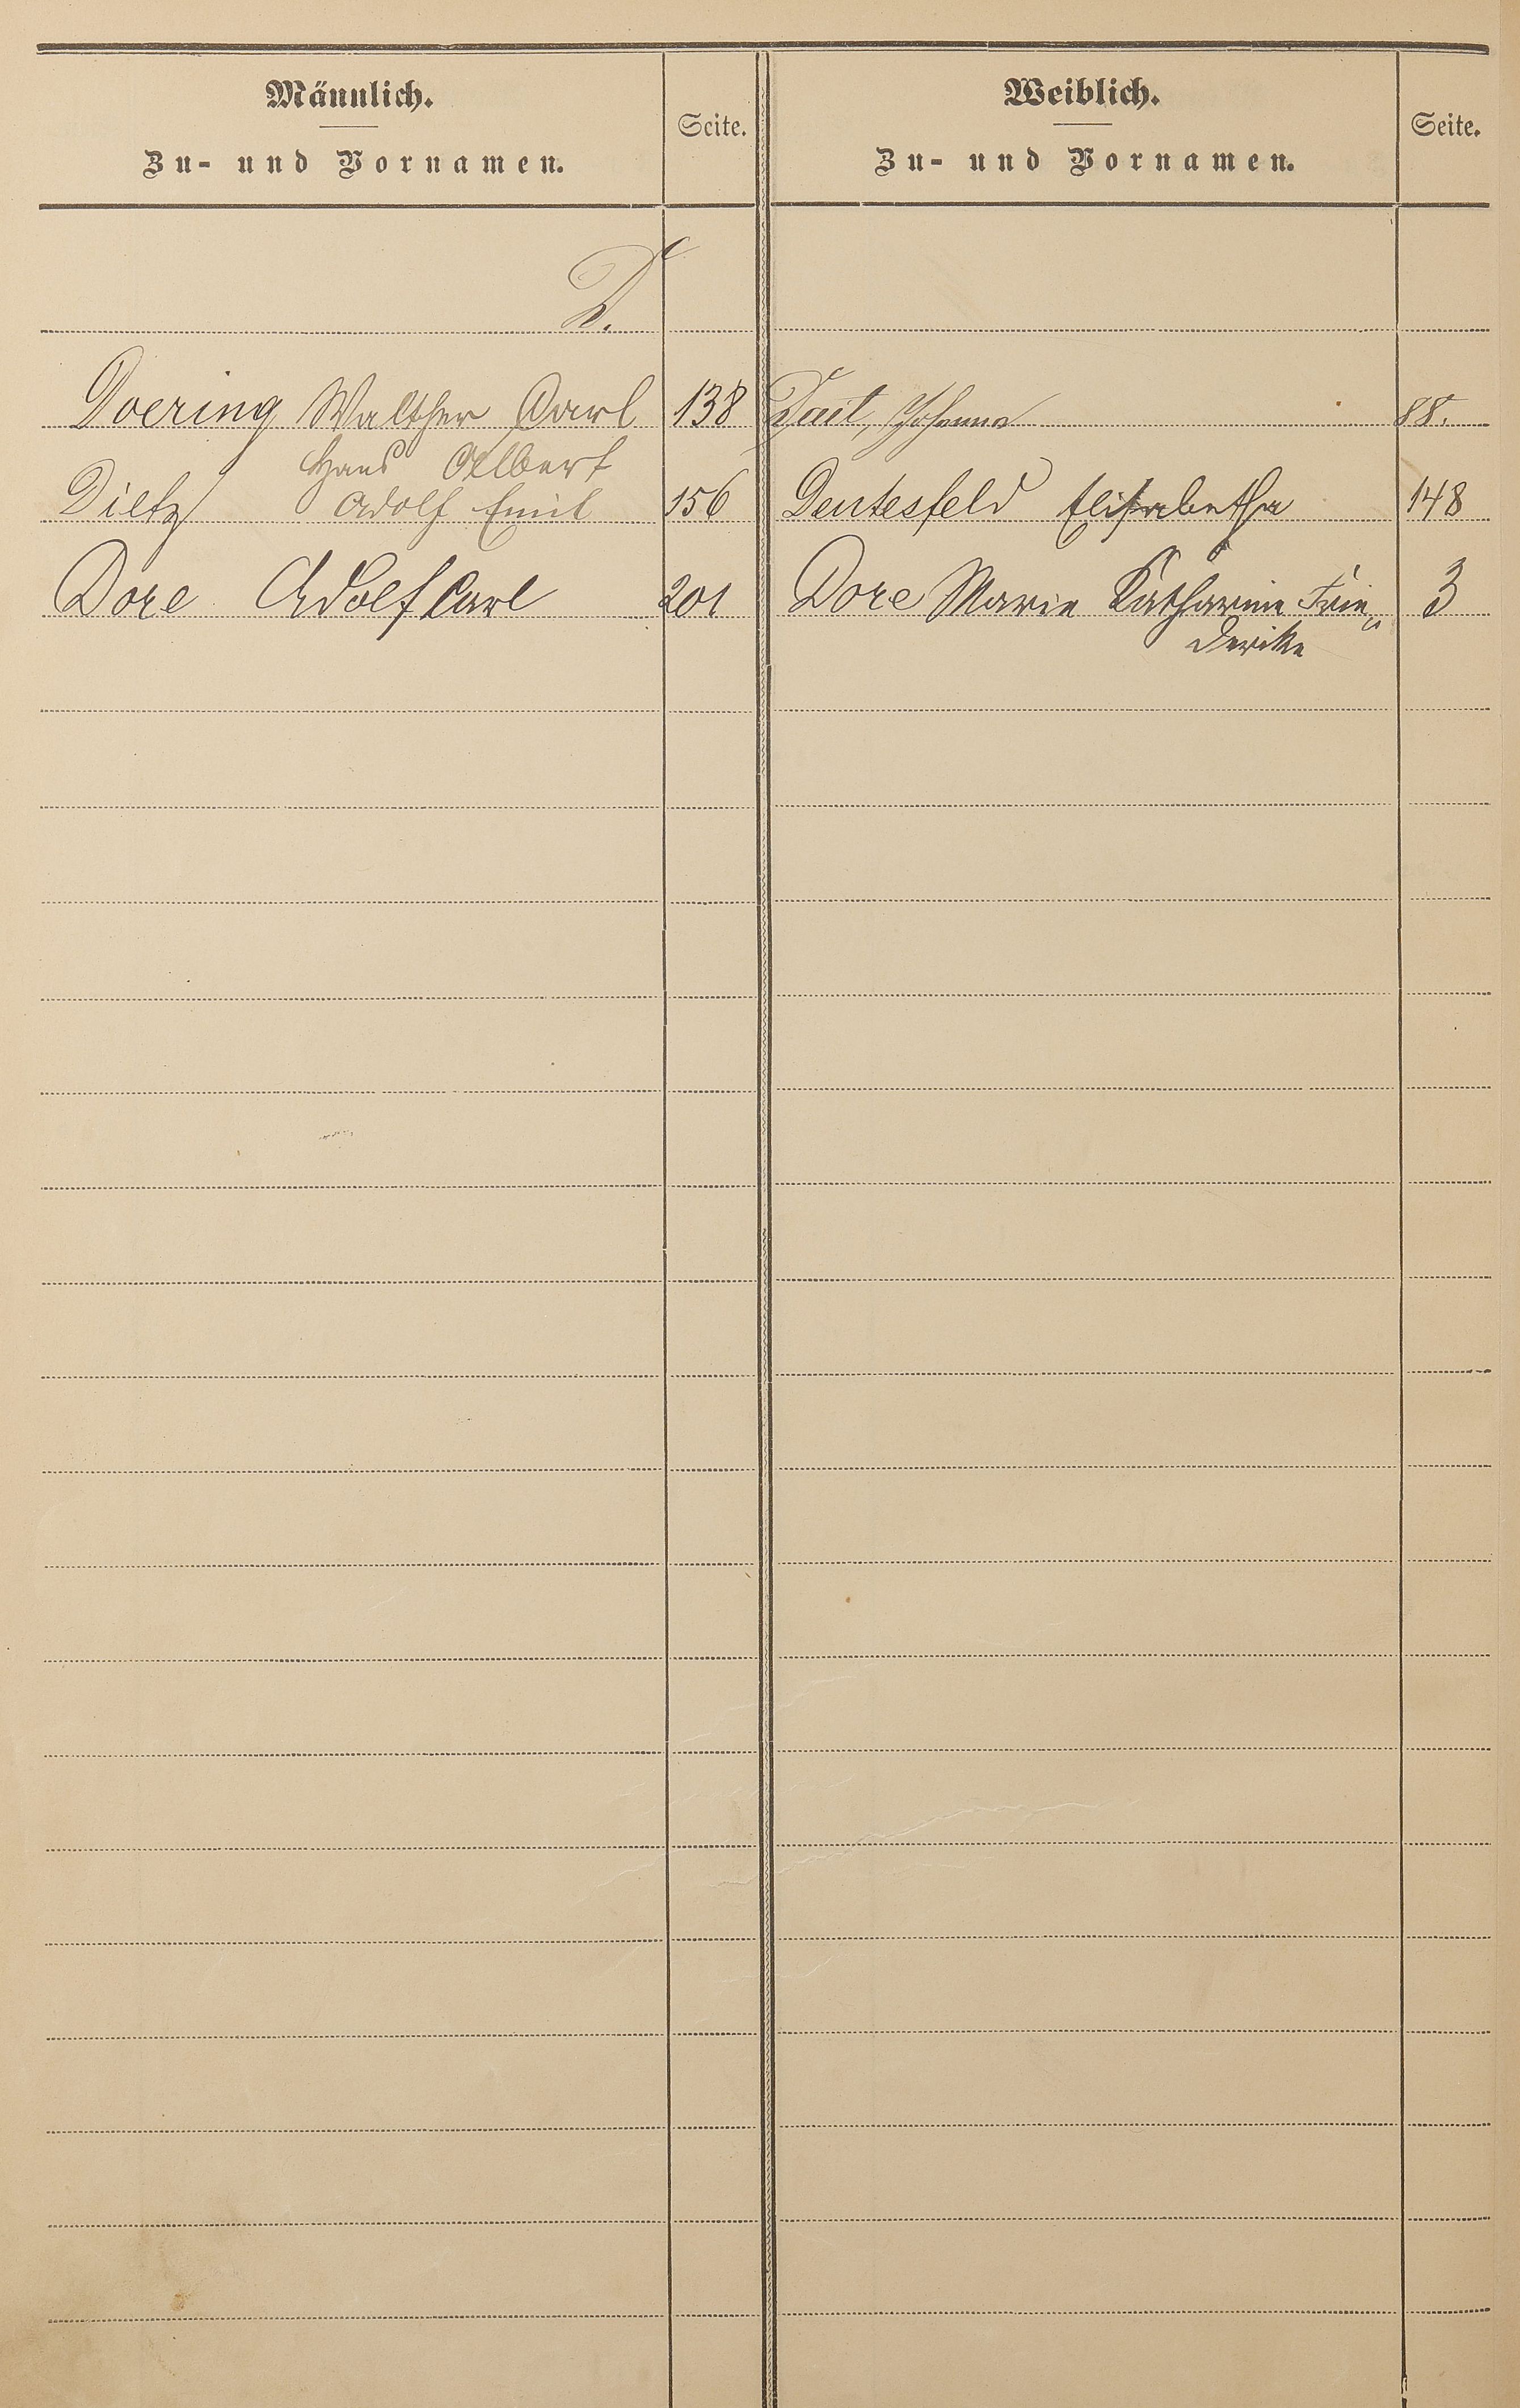 Männlich.
Zu- und Vornamen.
Seite.
Weiblich.
Zu- und Vornamen.
Seite.
D.
Doering Walther Carl 138
Hans Albert
Dietz Adolf Emil 156
Dore Adolf Carl 201
Dait, Johanna 88.
Deutesfeld Elisabetha 148
Dore Marie Katharine Frie„ 3
derike